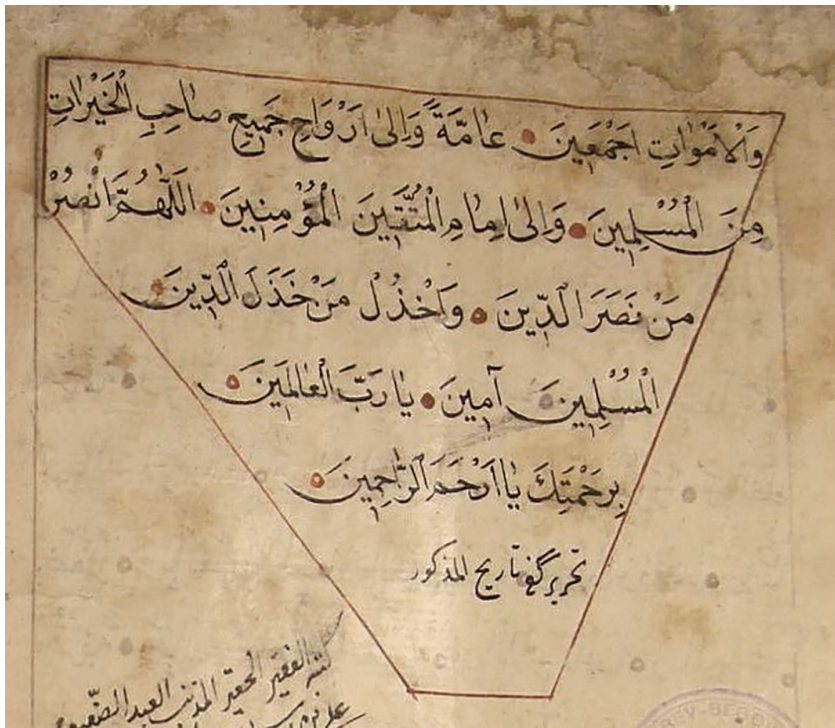 وَالْاَمْوٰاتِ اَجْمَعٖينَ عٰامَّةً وَاِلٰى اَرْوٰاحِ جَمٖيعِ صٰاحِبِ الْخَيْرٰاتِ
مِنَ الْمُسْلِمٖينَ وَاِلٰى اِمٰامِ الْمُتَّقٖينَ الْمُؤْمِنٖينَ اَللّٰهُمَّ انْصُرْ
مَنْ نَصَرَ الدّٖينَ وَاخْذُلْ مَنْ خَذَلَ الدّٖينَ
الْمُسْلِمٖينَ آمٖينَ يٰا رَبَّ الْعٰالَمٖينَ
بِرَحْمَتِكَ يٰا اَرْحَمَ الرّٰاحِمٖينَ
تاريخ المذكور
كتبه الفقير الحقير المذنب العبد الضعيف